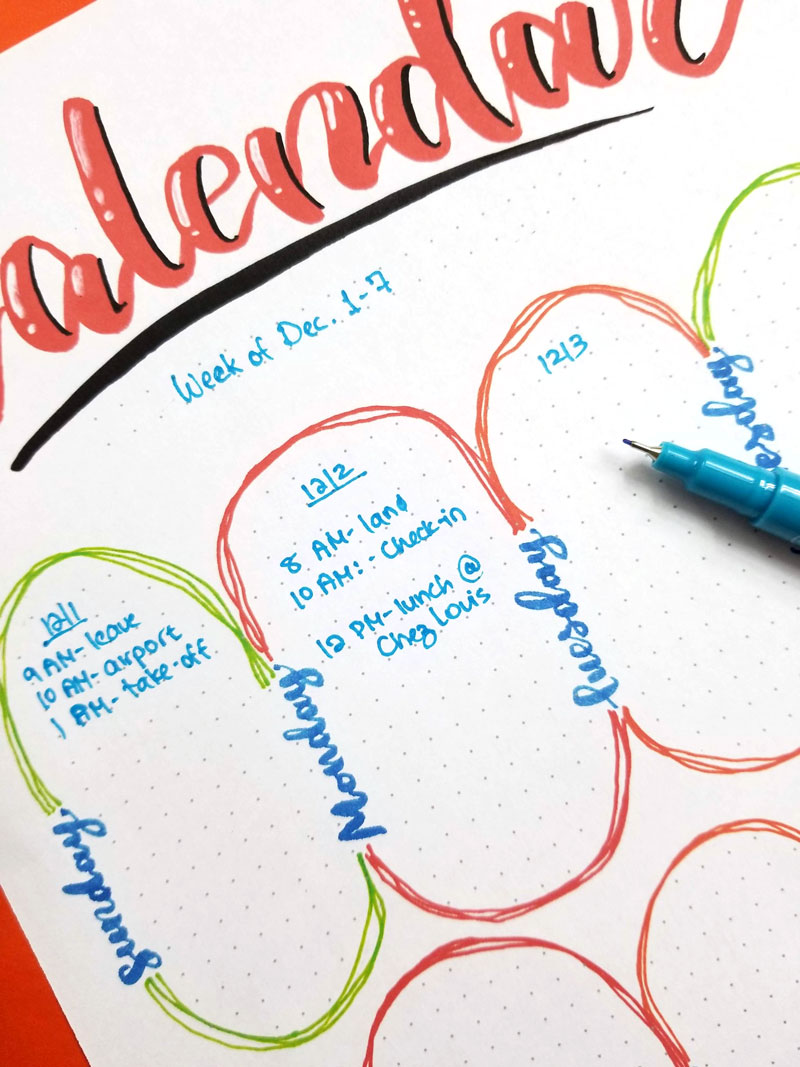 alendar
Week of Dec. 1-7
12/1
9 AM- leave
10 AM- airport
1 AM- take-off
Sunday
12/2
8 AM- land
10 AM:- Check-in
12 PM- lunch @
Chez Louis
Monday
12/3
Tuesday
esday